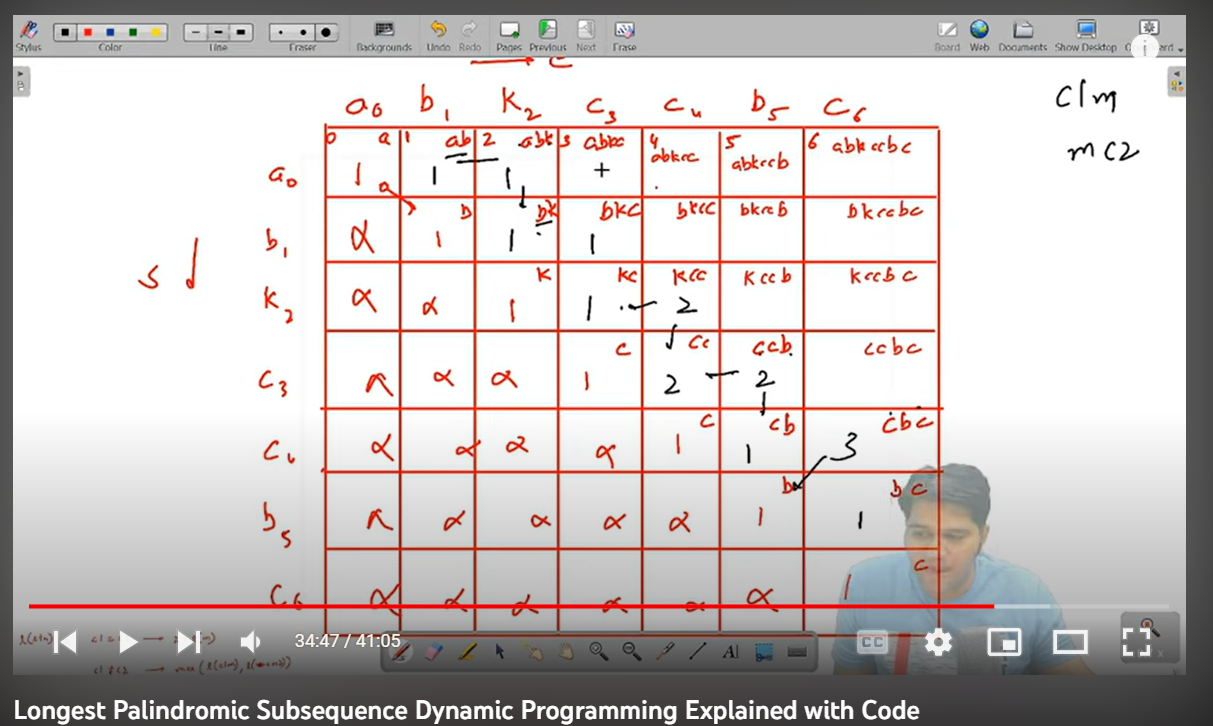 Stylus Color Line Eraser Backgrounds Undo Redo Pages Previous Next Erase Board Web Documents Show Desktop
c
a0 b1 k2 c3 c4 b5 c6
c1m
mc2
0 a 1 ab 2 abk 3 abkc 4 abkcc 5 abkccb 6 abkccbc
a0 1 1 1 +
a
b bk bkc bkcc bkccb bkccbc
b1 α 1 1 1
s
k kc kcc kccb kccbc
k2 α α 1 1 2
c cc ccb ccbc
c3 α α α 1 2 2
c cb cbc
c4 α α α α 1 1 3
b bc
b5 α α α α α 1 1
c
c6 α α α α α α 1
34:47 / 41:05
CC
Longest Palindromic Subsequence Dynamic Programming Explained with Code